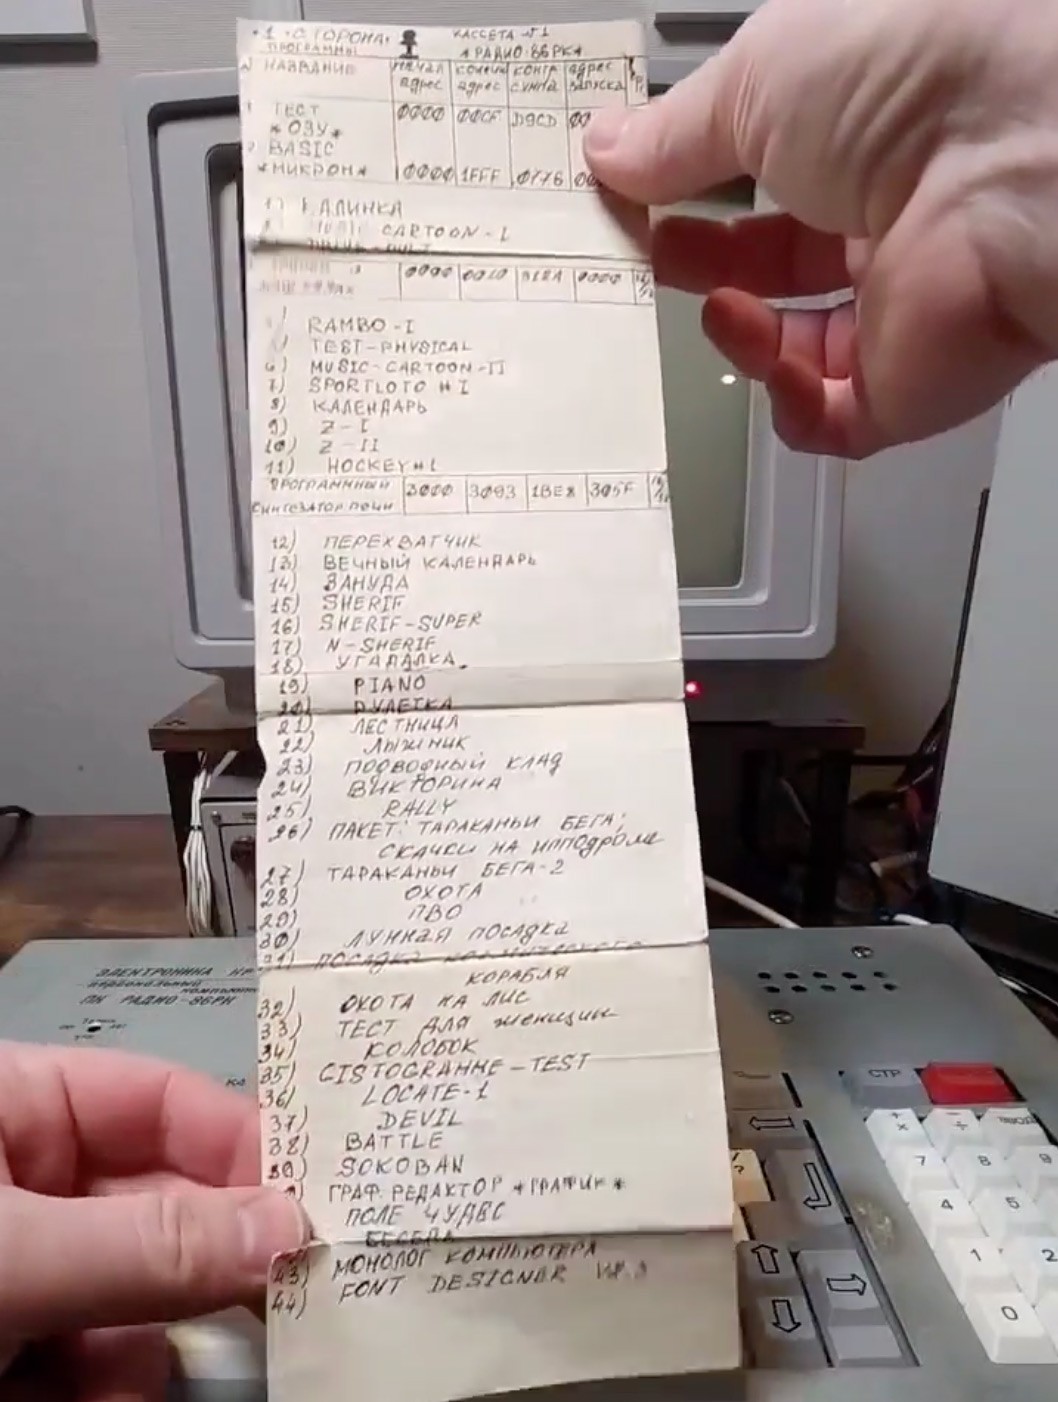 1 СТОРОНА КАССЕТА №1
ПРОГРАММЫ *РАДИО-86РК*
№ НАЗВАНИЕ НАЧАЛ адрес конечн адрес контр сумма адрес запуска
1 ТЕСТ 0000 00CF D9CD
*ОЗУ*
2 BASIC
*МИКРОН* 0000 1FFF 0776
1) КАЛИНКА
CARTOON-I
0000
4) RAMBO-I
5) TEST-PHYSICAL
6) MUSIC-CARTOON-II
7) SPORTLOTO #I
8) КАЛЕНДАРЬ
9) Z-I
10) Z-II
11) HOCKEY#1
ПРОГРАММНЫЙ 3000 3093 1BE8 305F
СИНТЕЗАТОР РЕЧИ
12) ПЕРЕХВАТЧИК
13) ВЕЧНЫЙ КАЛЕНДАРЬ
14) ЗАНУДА
15) SHERIF
16) SHERIF-SUPER
17) N-SHERIF
18) УГАДАЛКА.
19) PIANO
20) РУЛЕТКА
21) ЛЕСТНИЦА
22) ЛЫЖНИК
23) ПОДВОДНЫЙ КЛАД
24) ВИКТОРИНА
25) RALLY
26) ПАКЕТ: ТАРАКАНЬИ БЕГА;
СКАЧКИ НА ИППОДРОМЕ
27) ТАРАКАНЬИ БЕГА-2
28) ОХОТА
29) ПВО
30) ЛУННАЯ ПОСАДКА
31) ПОСАДКА КОСМИЧЕСКОГО
КОРАБЛЯ
32) ОХОТА НА ЛИС
33) ТЕСТ ДЛЯ женщин
34) КОЛОБОК
35) CISTOGRAMME-TEST
36) LOCATE-1
37) DEVIL
38) BATTLE
39) SOKOBAN
ГРАФ. РЕДАКТОР *ГРАФИК*
ПОЛЕ ЧУДЕС
БЕСЕДА
43) МОНОЛОГ КОМПЬЮТЕРА
44) FONT DESIGNER
ЭЛЕКТРОНИКА КР
персональный компьютер
ПК РАДИО-86РК
СТР
+ × − ÷ ВВОД
7 8 9
4 5
1 2
0
?